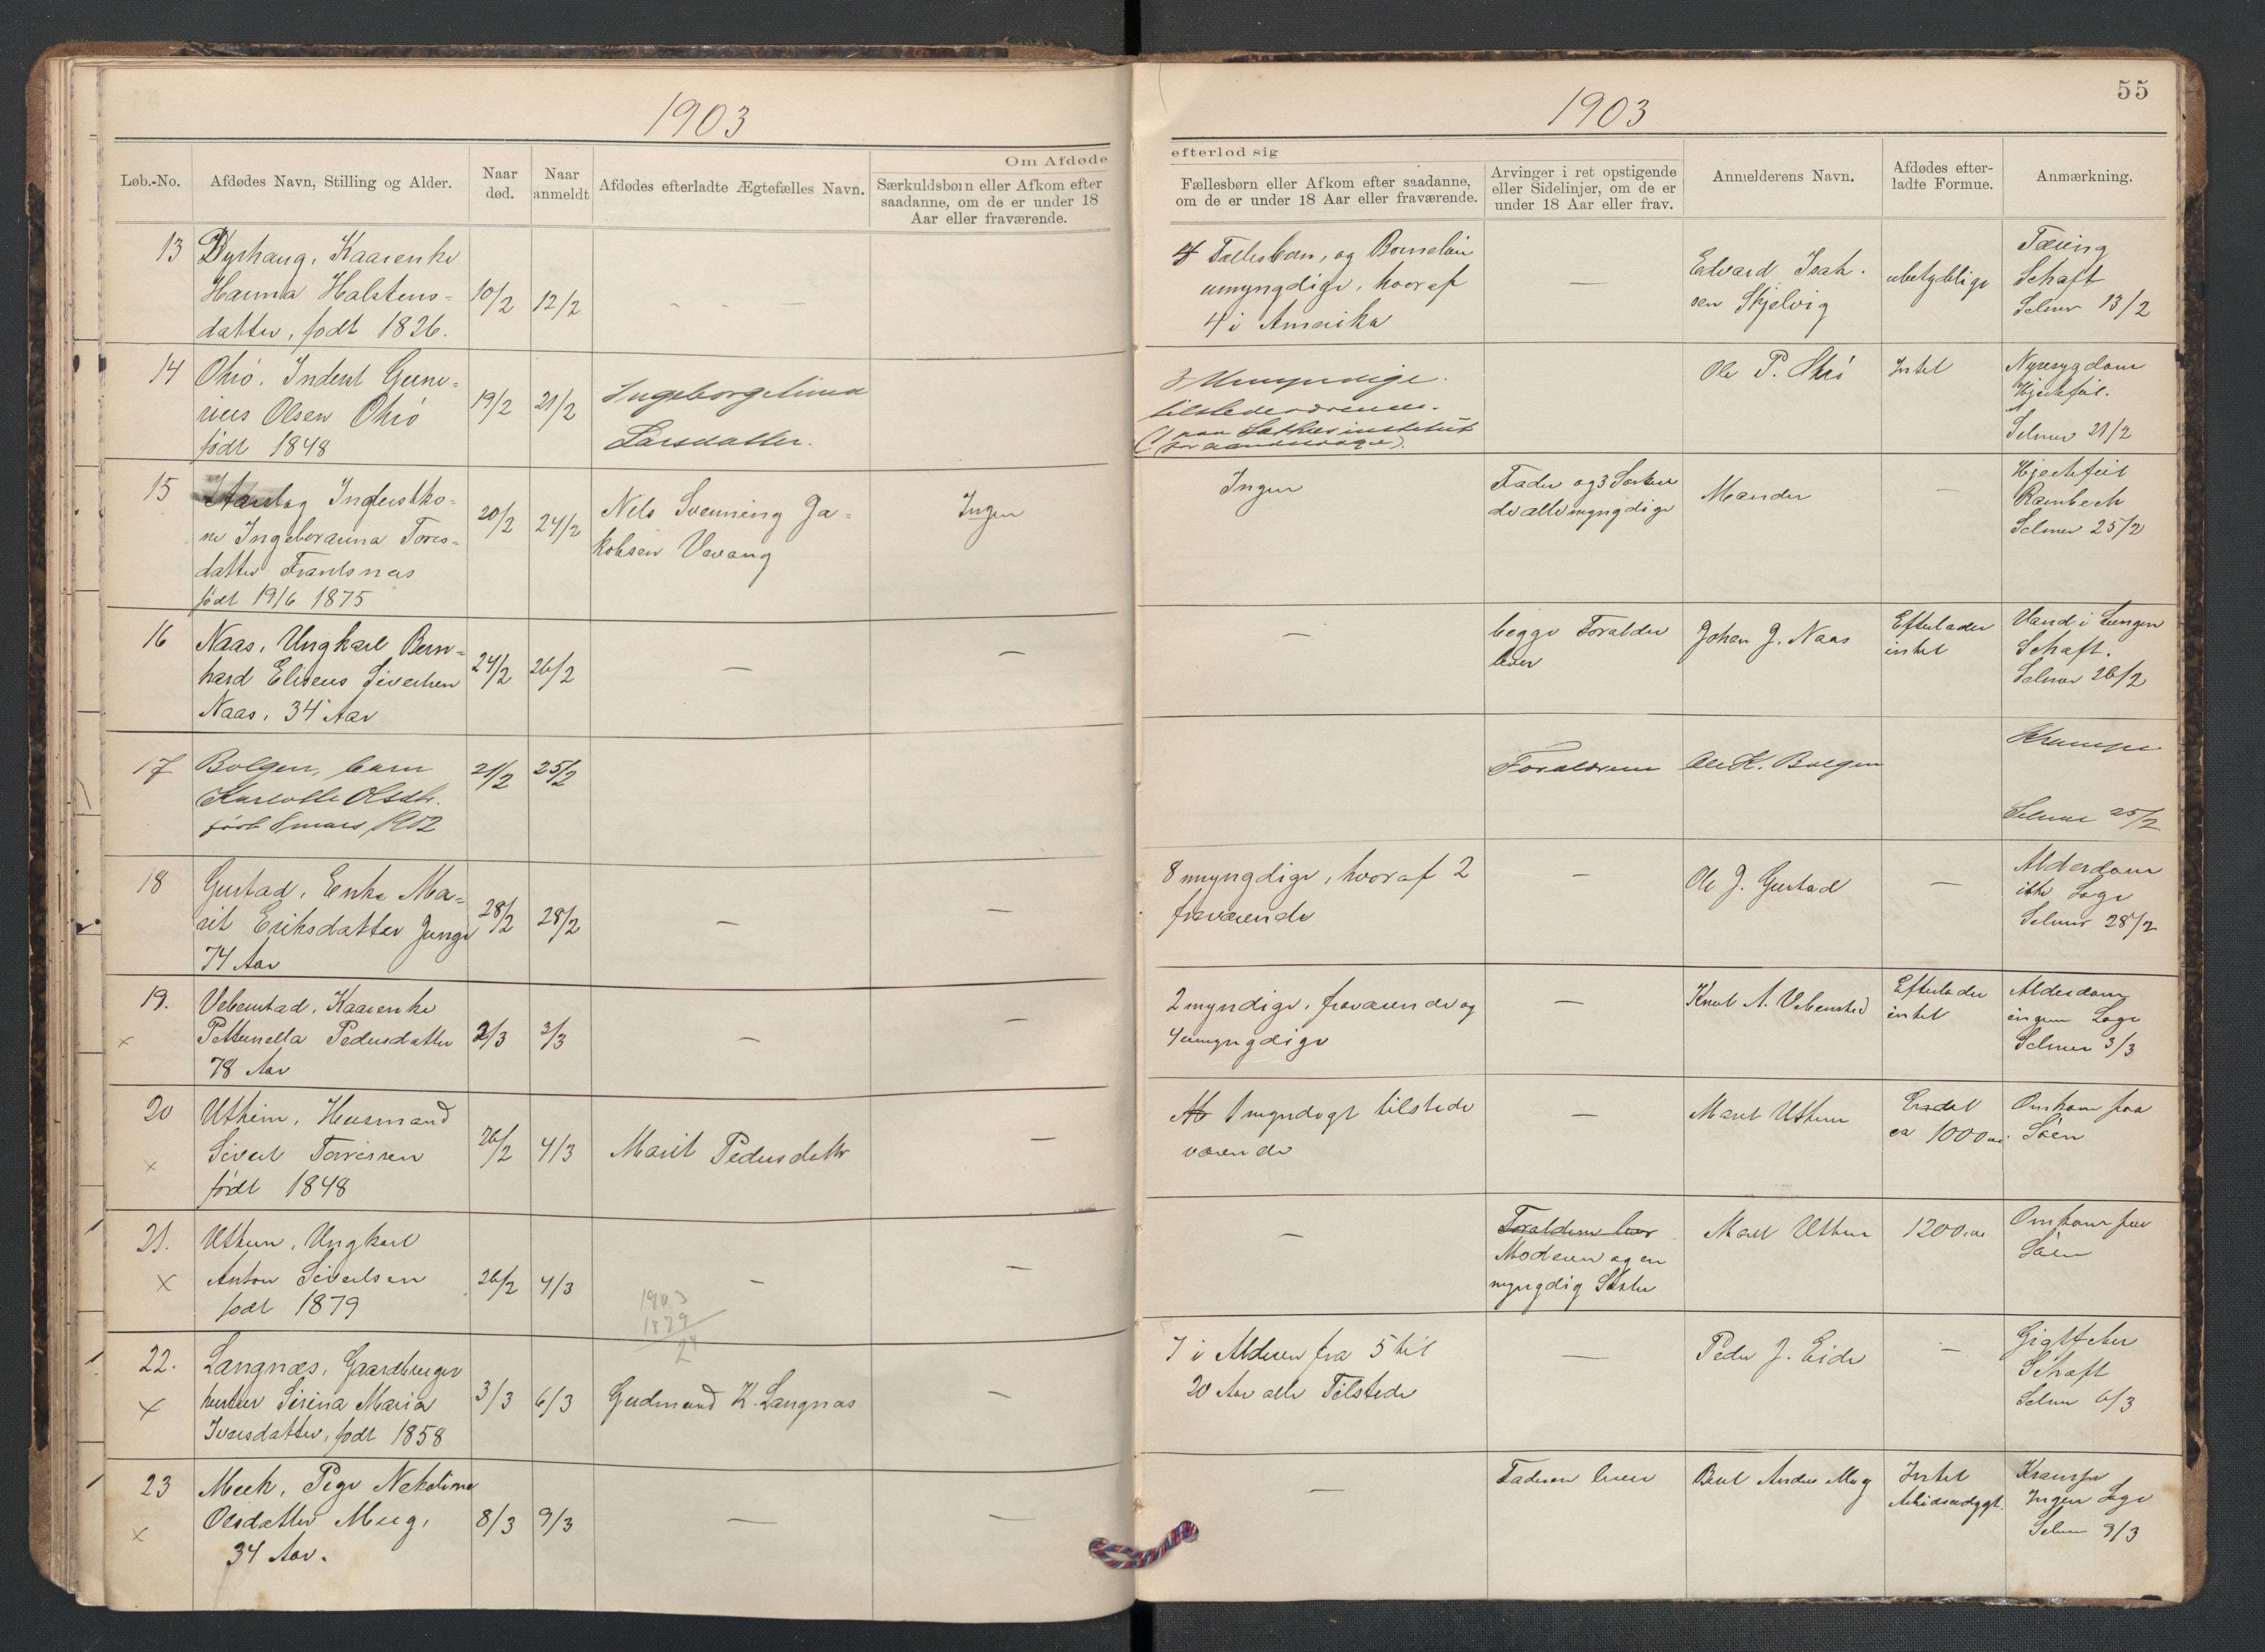 1903
Om Afdøde
Løb.-No.
Afdødes Navn, Stilling og Alder.
Naar
død.
Naar
anmeldt
Afdødes efterladte Ægtefælles Navn.
Særkuldsbørn eller Afkom efter
saadanne, om de er under 18
Aar eller fraværende.
13
Kaarenke
Hanna Halstens-
datter, født 1826.
10/2
12/2
14
Olsen
født 1848
19/2
21/2
Larsdatter.
15
Inderstko-
ne Tores-
datter
født 19/6 1875
20/2
24/2
Nils Svenning Ja-
kobsen Vevang
Ingen
16
Naas, Ungkarl Bern-
hard Eliseus Sivertsen
Naas, 34 Aar
24/2
26/2
17
Bolgen, barn
Olsdtr.
født mars 1902
21/2
25/2
18
Gustad, Enke Ma-
rit Eriksdatter
74 Aar
28/2
28/2
19.
Vebenstad, Kaarenke
Petternella Pedersdatter
78 Aar
2/3
3/3
20
Utheim, Husmand
Sivert
født 1848
26/2
4/3
Marit Pedersdatter
21.
Ungkarl
Anton Sivertsen
født 1879
26/2
4/3
1903
1879
24
22.
Langnæs, Gaardbruger
hustru Sirina Maria
Iversdatter, født 1858
3/3
6/3
Gudmund K. Langnæs
23
Meek, Pige
Olsdatter
34 Aar.
8/3
9/3
55
1903
efterlod sig
Fællesbørn eller Afkom efter saadanne,
om de er under 18 Aar eller fraværende.
Arvinger i ret opstigende
eller Sidelinjer, om de er
under 18 Aar eller frav.
Anmelderens Navn.
Afdødes efter-
ladte Formue.
Anmærkning.
4 Fællesbørn, og
umyngdige, hvoraf
4 i Amerika
Edvard Isak-
sen Skjelvig
ubetydelige
Tæring
Schaft
Selmer 13/2
3 Umyndige
tilstedeværende.
Ole P.
Intet
Nyresygdom
Hjertefeil.
Selmer 21/2
Ingen
Fader og 3 Søskende
alle myngdige
Manden
Hjertefeil
Rambech
Selmer 25/2
begge Forældre
lever
Johan J. Naas
Efterlader
intet
Vand i Lungen
Schaft.
Selmer 26/2
Forældrene
Ole K. Bolgen
Krampe
Selmer 25/2
8 myngdige, hvoraf 2
fraværende
Ole J. Gustad
Alderdom
ikke Læge
Selmer 28/2
2 myndige, fraværende og
4 umyngdige
Knut A. Vebenstad
Efterlader
intet
Alderdom
ingen Læge
Selmer 3/3
1 myndigt tilstede
værende
Marit Utheim
ca 1000
Omkom paa
Søen
Forældrene lever
Moderen og en
myngdig Søster
Marit Utheim
1200
Omkom paa
Søen
7 i Alderen fra 5 til
20 Aar alle Tilstede
Peder J. Eide
Gigtfeber
Schaft
Selmer 6/3
Faderen lever
Intet
Krampe
Ingen Læge
Selmer 9/3